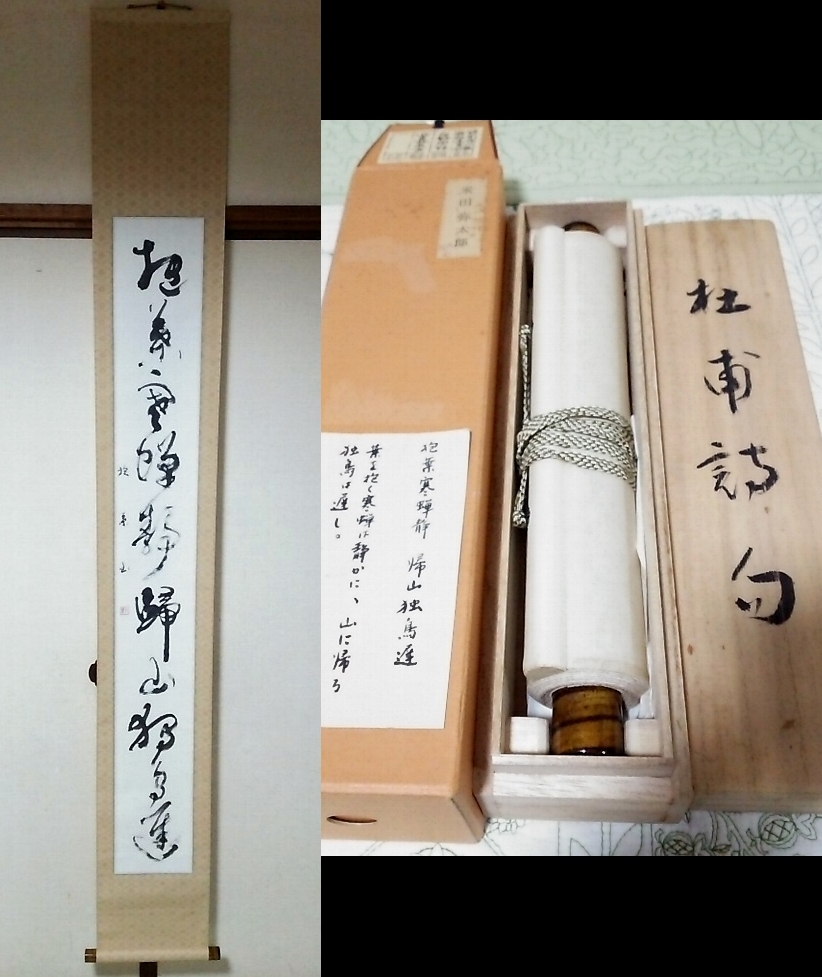 抱葉寒蝉静歸山獨鳥遲
米田弥太郎
抱葉寒蝉静　帰山独鳥遅
葉を抱く寒蝉は静かに、山に帰る
独鳥は遅し。
杜甫詩句